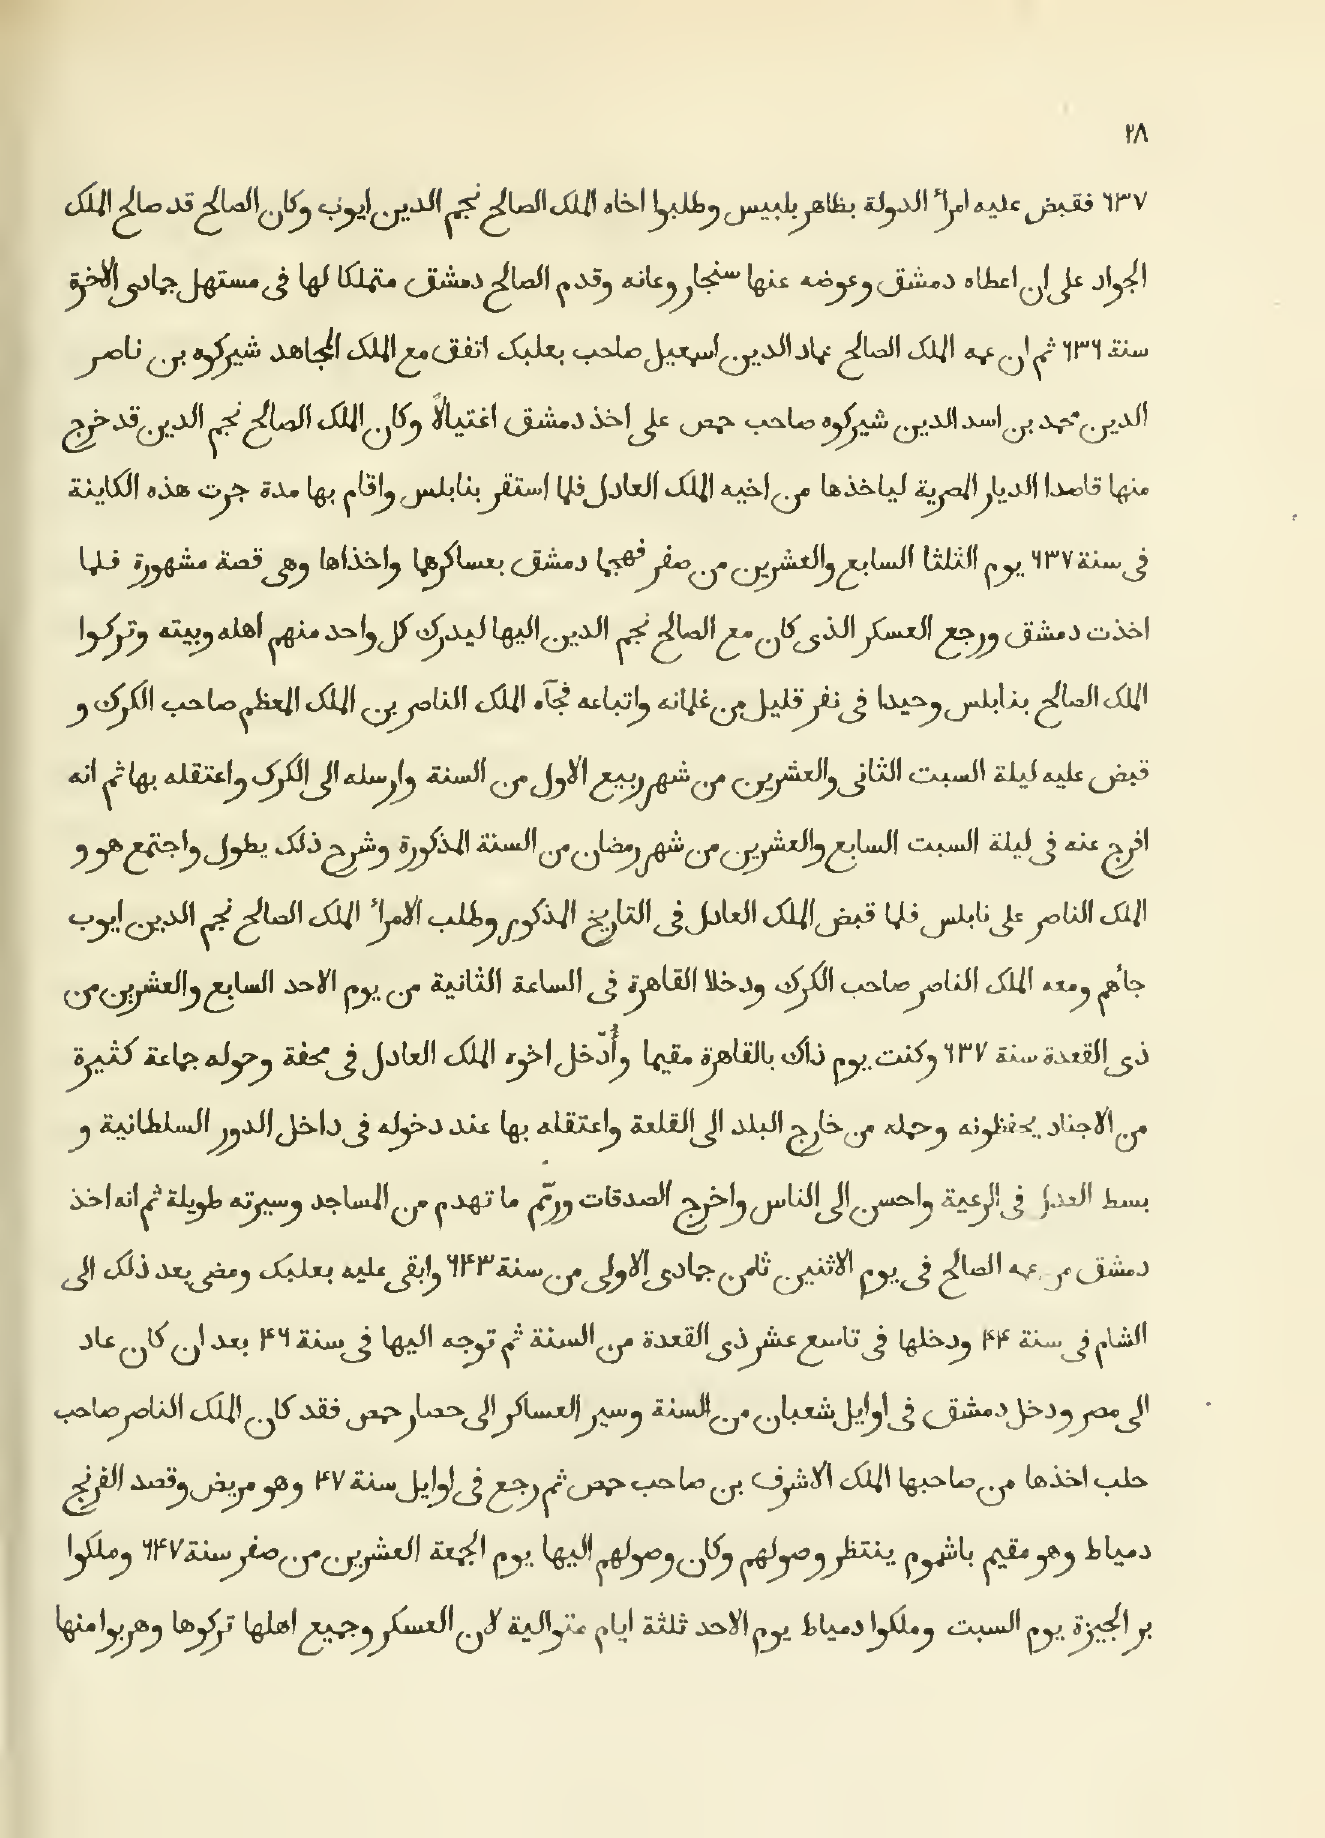 ٢٨
٦٣٧ فقبض عليه امرأ الدولة بظاهر بلبيس وطلبوا اخاه الملك الصالح نجم الدين ايوب وكان الصالح قد صالح الملك
الجواد على ان اعطاه دمشق وعوضه عنها سنجار وعانه وقدم الصالح دمشق متملكا لها فى مستهل جمادى الاخرة
سنة ٦٣٦ ثم ان عمه الملك الصالح عماد الدين اسمعيل صاحب بعلبك اتفق مع الملك المجاهد شيركوه بن ناصر
الدين محمد بن اسد الدين شيركوه صاحب حمص على اخذ دمشق اغتيالاً وكان الملك الصالح نجم الدين قد خرج
منها قاصدا الديار المصرية لياخذها من اخيه الملك العادل فلما استقر بنابلس واقام بها مدة جرت هذه الكاينة
فى سنة ٦٣٧ يوم الثلثا السابع والعشرين من صفر فهجما دمشق بعساكرهما واخذاها وهى قصة مشهورة فلما
اخذت دمشق ورجع العسكر الذى كان مع الصالح نجم الدين اليها ليدرك كل واحد منهم اهله وبيته وتركوا
الملك الصالح بنابلس وحيدا فى نفر قليل من غلمانه واتباعه فجآه الملك الناصر بن الملك المعظم صاحب الكرك و
قبض عليه ليلة السبت الثانى والعشرين من شهر ربيع الاول من السنة وارسله الى الكرك واعتقله بها ثم انه
افرج عنه فى ليلة السبت السابع والعشرين من شهر رمضان من السنة المذكورة وشرح ذلك يطول واجتمع هو و
الملك الناصر على نابلس فلما قبض الملك العادل فى التاريخ المذكور وطلب الامرأ الملك الصالح نجم الدين ايوب
جأهم ومعه الملك الناصر صاحب الكرك ودخلا القاهرة فى الساعة الثانية من يوم الاحد السابع والعشرين من
ذى القعدة سنة ٦٣٧ وكنت يوم ذاك بالقاهرة مقيما وأُدّخل اخوه الملك العادل فى محفة وحوله جماعة كثيرة
من الاجناد يحفظونه وحمله من خارج البلد الى القلعة واعتقله بها عند دخوله فى داخل الدور السلطانية و
بسط العدل فى الرعية واحسن الى الناس واخرج الصدقات ورمّم ما تهدم من المساجد وسيرته طويلة ثم انه اخذ
دمشق من عمه الصالح فى يوم الاثنين ثامن جمادى الاولى من سنة ٦۴٣ وابقى عليه بعلبك ومضى بعد ذلك الى
الشام فى سنة ۴۴ ودخلها فى تاسع عشر ذى القعدة من السنة ثم توجه اليها فى سنة ۴٦ بعد ان كان عاد
الى مصر ودخل دمشق فى اوايل شعبان من السنة وسير العساكر الى حصار حمص فقد كان الملك الناصر صاحب
حلب اخذها من صاحبها الملك الاشرف بن صاحب حمص ثم رجع فى اوايل سنة ۴٧ وهو مريض وقصد الفرنج
دمياط وهو مقيم باشموم ينتظر وصولهم وكان وصولهم اليها يوم الجمعة العشرين من صفر سنة ٦۴٧ وملكوا
بر الجيزة يوم السبت وملكوا دمياط يوم الاحد ثلثة ايام متوالية لان العسكر وجميع اهلها تركوها وهربوا منها